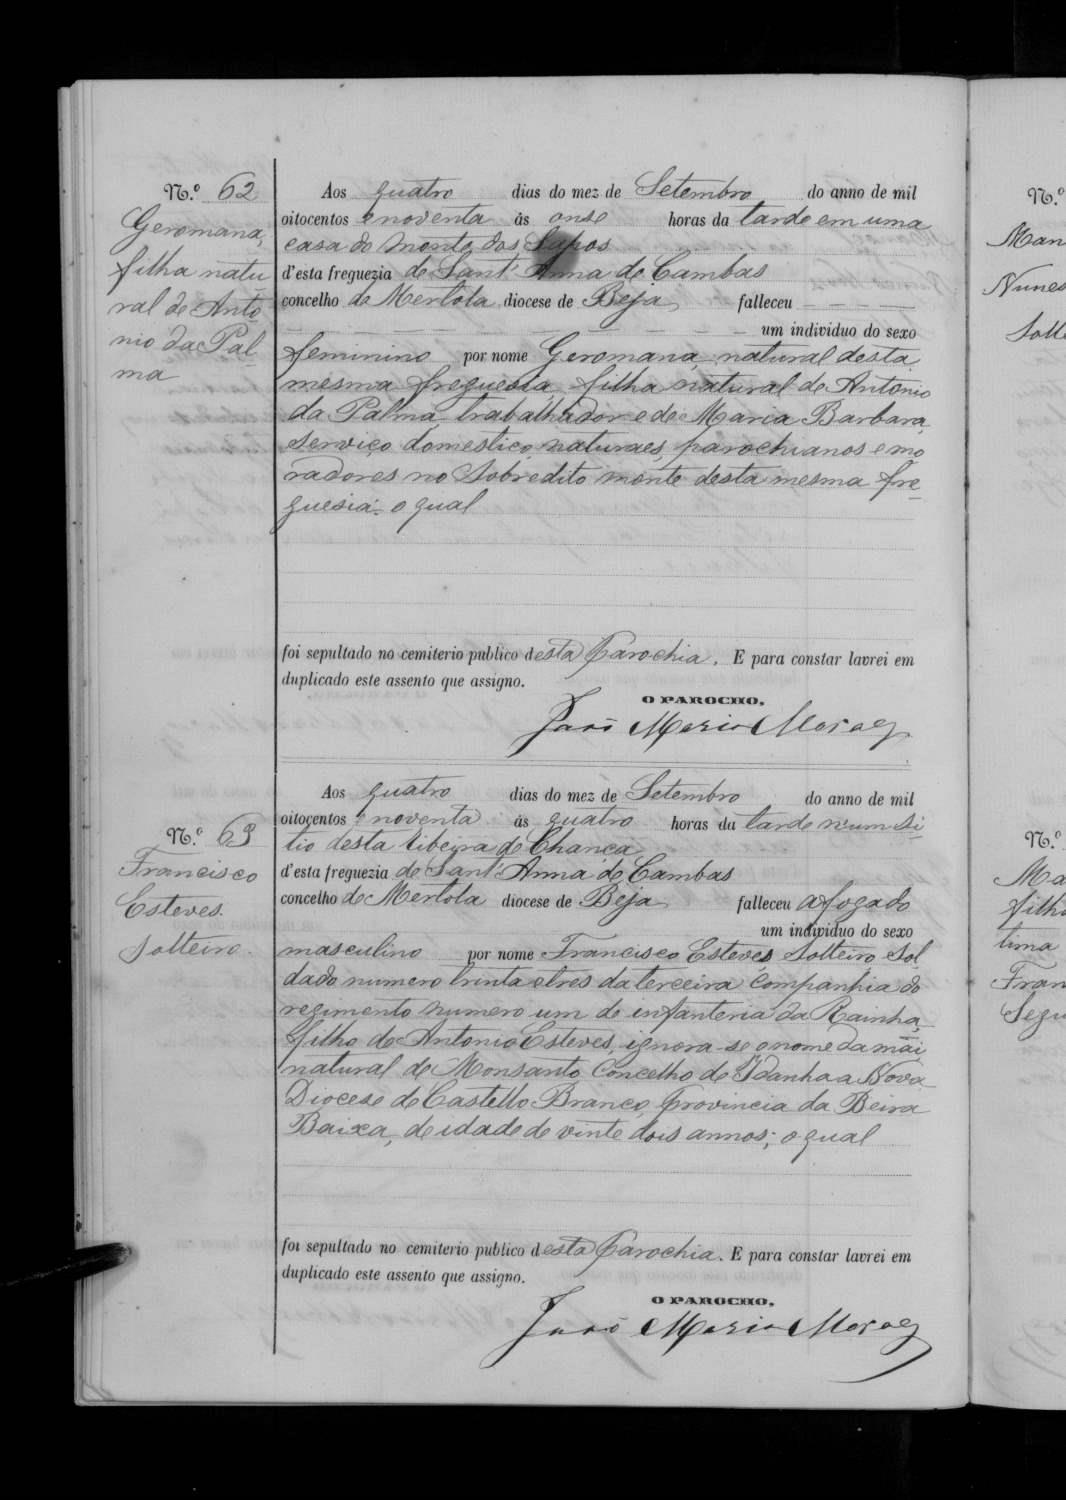 N.º 62
Geromana,
filha natu
ral de Anto
nio da Pal
ma
Aos quatro dias do mez de Setembro do anno de mil
oitocentos e noventa ás onse horas da tarde em uma
casa do monte dos Sapos
d'esta freguezia de Sant'Anna de Cambas
concelho de Mertola diocese de Beja falleceu
um individuo do sexo
feminino por nome Geromana, natural desta
mesma freguesia, filha natural de Antonio
da Palma, trabalhador e de Maria Barbara,
serviço domestico, naturaes, parochianos e mo
radores no sobredito monte desta mesma fre-
guesia: o qual
foi sepultado no cemiterio publico desta Parochia. E para constar lavrei em
duplicado este assento que assigno.
O PAROCHO,
João Maria Moraes
N.º 63
Francisco
Esteves.
Solteiro.
Aos quatro dias do mez de Setembro do anno de mil
oitocentos e noventa ás quatro horas da tarde n'um si-
tio desta ribeira de Chança
d'esta freguezia de Sant'Anna de Cambas
concelho de Mertola diocese de Beja falleceu afogado
um individuo do sexo
masculino por nome Francisco Esteves, Solteiro Sol
dado numero trinta e tres da terceira Companhia do
regimento numero um de infanteria da Rainha,
filho de Antonio Esteves, ignora-se o nome da mãi,
natural de Monsanto, Concelho de Idanha a Nova
Diocese de Castello Branco, Provincia da Beira
Baixa, de idade de vinte dois annos; o qual
foi sepultado no cemiterio publico desta Parochia. E para constar lavrei em
duplicado este assento que assigno.
O PAROCHO,
João Maria Moraes
N.º
Man
Nunes
Solte
N.º
Ma
filh
tima
Fran
Segu